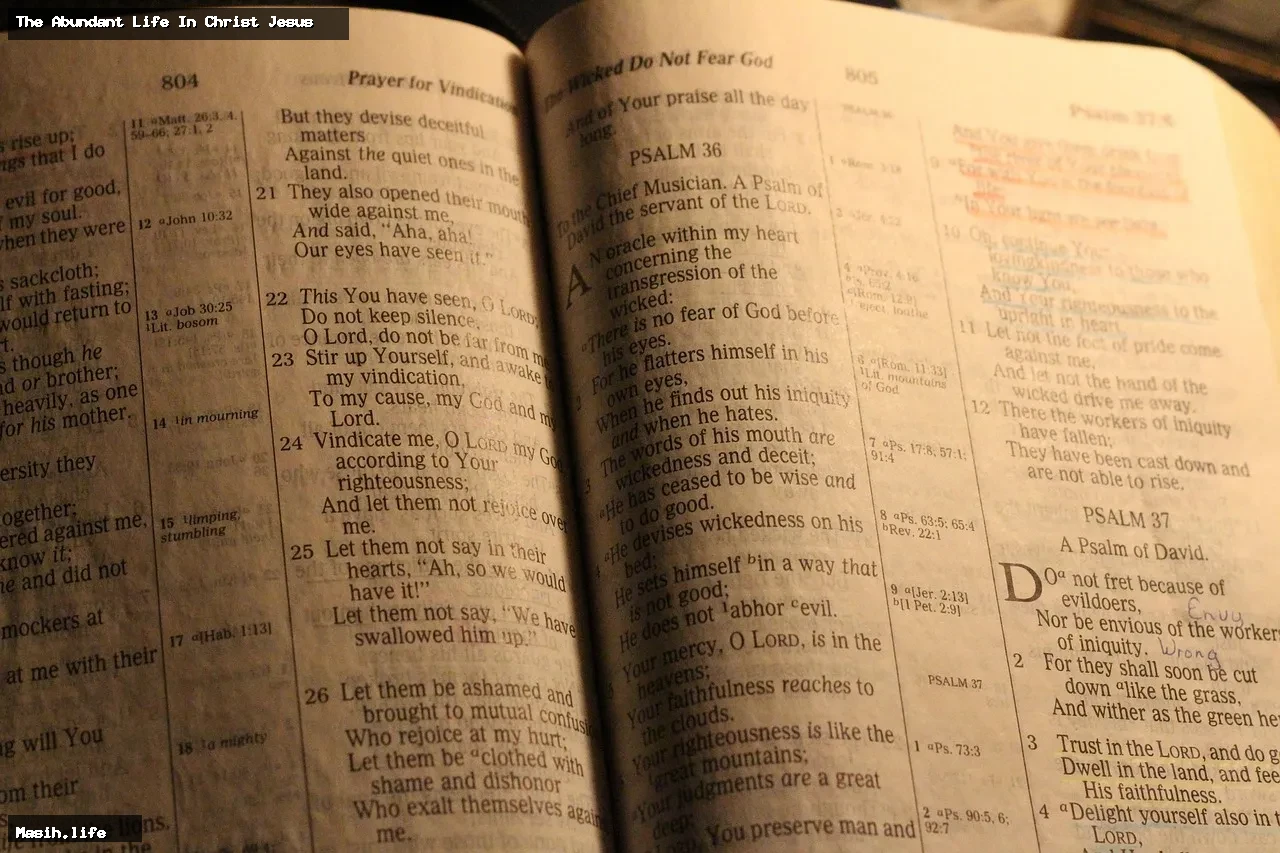 The Abundant Life In Christ Jesus
804
Prayer for Vindication
s rise up;
ngs that I do
evil for good,
my soul.
when they were
s sackcloth;
lf with fasting;
would return to
rt.
s though he
nd or brother;
heavily, as one
for his mother.
ersity they
ogether;
ered against me,
know it;
ne and did not
mockers at
at me with their
ng will You
om their
lions.
11 aMatt. 26:3, 4,
59–66; 27:1, 2
12 aJohn 10:32
13 aJob 30:25
1Lit. bosom
14 1in mourning
15 1limping,
stumbling
17 a[Hab. 1:13]
18 1a mighty
But they devise deceitful
matters
Against the quiet ones in the
land.
21 They also opened their mouth
wide against me,
And said, “Aha, aha!
Our eyes have seen it.”
22 This You have seen, O LORD;
Do not keep silence;
O Lord, do not be far from me
23 Stir up Yourself, and awake t
my vindication,
To my cause, my God and my
Lord.
24 Vindicate me, O LORD my Go
according to Your
righteousness;
And let them not rejoice over
me.
25 Let them not say in their
hearts, “Ah, so we would
have it!”
Let them not say, “We have
swallowed him up.”
26 Let them be ashamed and
brought to mutual confusi
Who rejoice at my hurt;
Let them be aclothed with
shame and dishonor
Who exalt themselves again
me.
The Wicked Do Not Fear God
805
And of Your praise all the day
long.
PSALM 36
To the Chief Musician. A Psalm of
David the servant of the LORD.
AN oracle within my heart
concerning the
transgression of the
wicked:
aThere is no fear of God before
his eyes.
2 For he flatters himself in his
own eyes,
When he finds out his iniquity
and when he hates.
3 The words of his mouth are
wickedness and deceit;
aHe has ceased to be wise and
to do good.
4 aHe devises wickedness on his
bed;
He sets himself bin a way that
is not good;
He does not 1abhor cevil.
5 Your mercy, O LORD, is in the
heavens;
Your faithfulness reaches to
the clouds.
6 Your righteousness is like the
great mountains;
aYour judgments are a great
deep;
You preserve man and
1 aRom. 3:18
3 aJer. 4:22
4 aProv. 4:16
bIs. 65:2
c[Rom. 12:9]
1reject, loathe
6 a[Rom. 11:33]
1Lit. mountains
of God
7 aPs. 17:8; 57:1;
91:4
8 aPs. 63:5; 65:4
bRev. 22:1
9 a[Jer. 2:13]
b[1 Pet. 2:9]
PSALM 37
1 aPs. 73:3
2 aPs. 90:5, 6;
92:7
Psalm 37:4
life;
bIn Your light we see light.
10 Oh, continue Your
lovingkindness to those who
know You,
And Your righteousness to the
upright in heart.
11 Let not the foot of pride come
against me,
And let not the hand of the
wicked drive me away.
12 There the workers of iniquity
have fallen;
They have been cast down and
are not able to rise.
PSALM 37
A Psalm of David.
DOa not fret because of
evildoers,
Envy
Nor be envious of the worker
of iniquity.
Wrong
2 For they shall soon be cut
down alike the grass,
And wither as the green he
3 Trust in the LORD, and do g
Dwell in the land, and fee
His faithfulness.
4 aDelight yourself also in t
LORD,
Masih.life